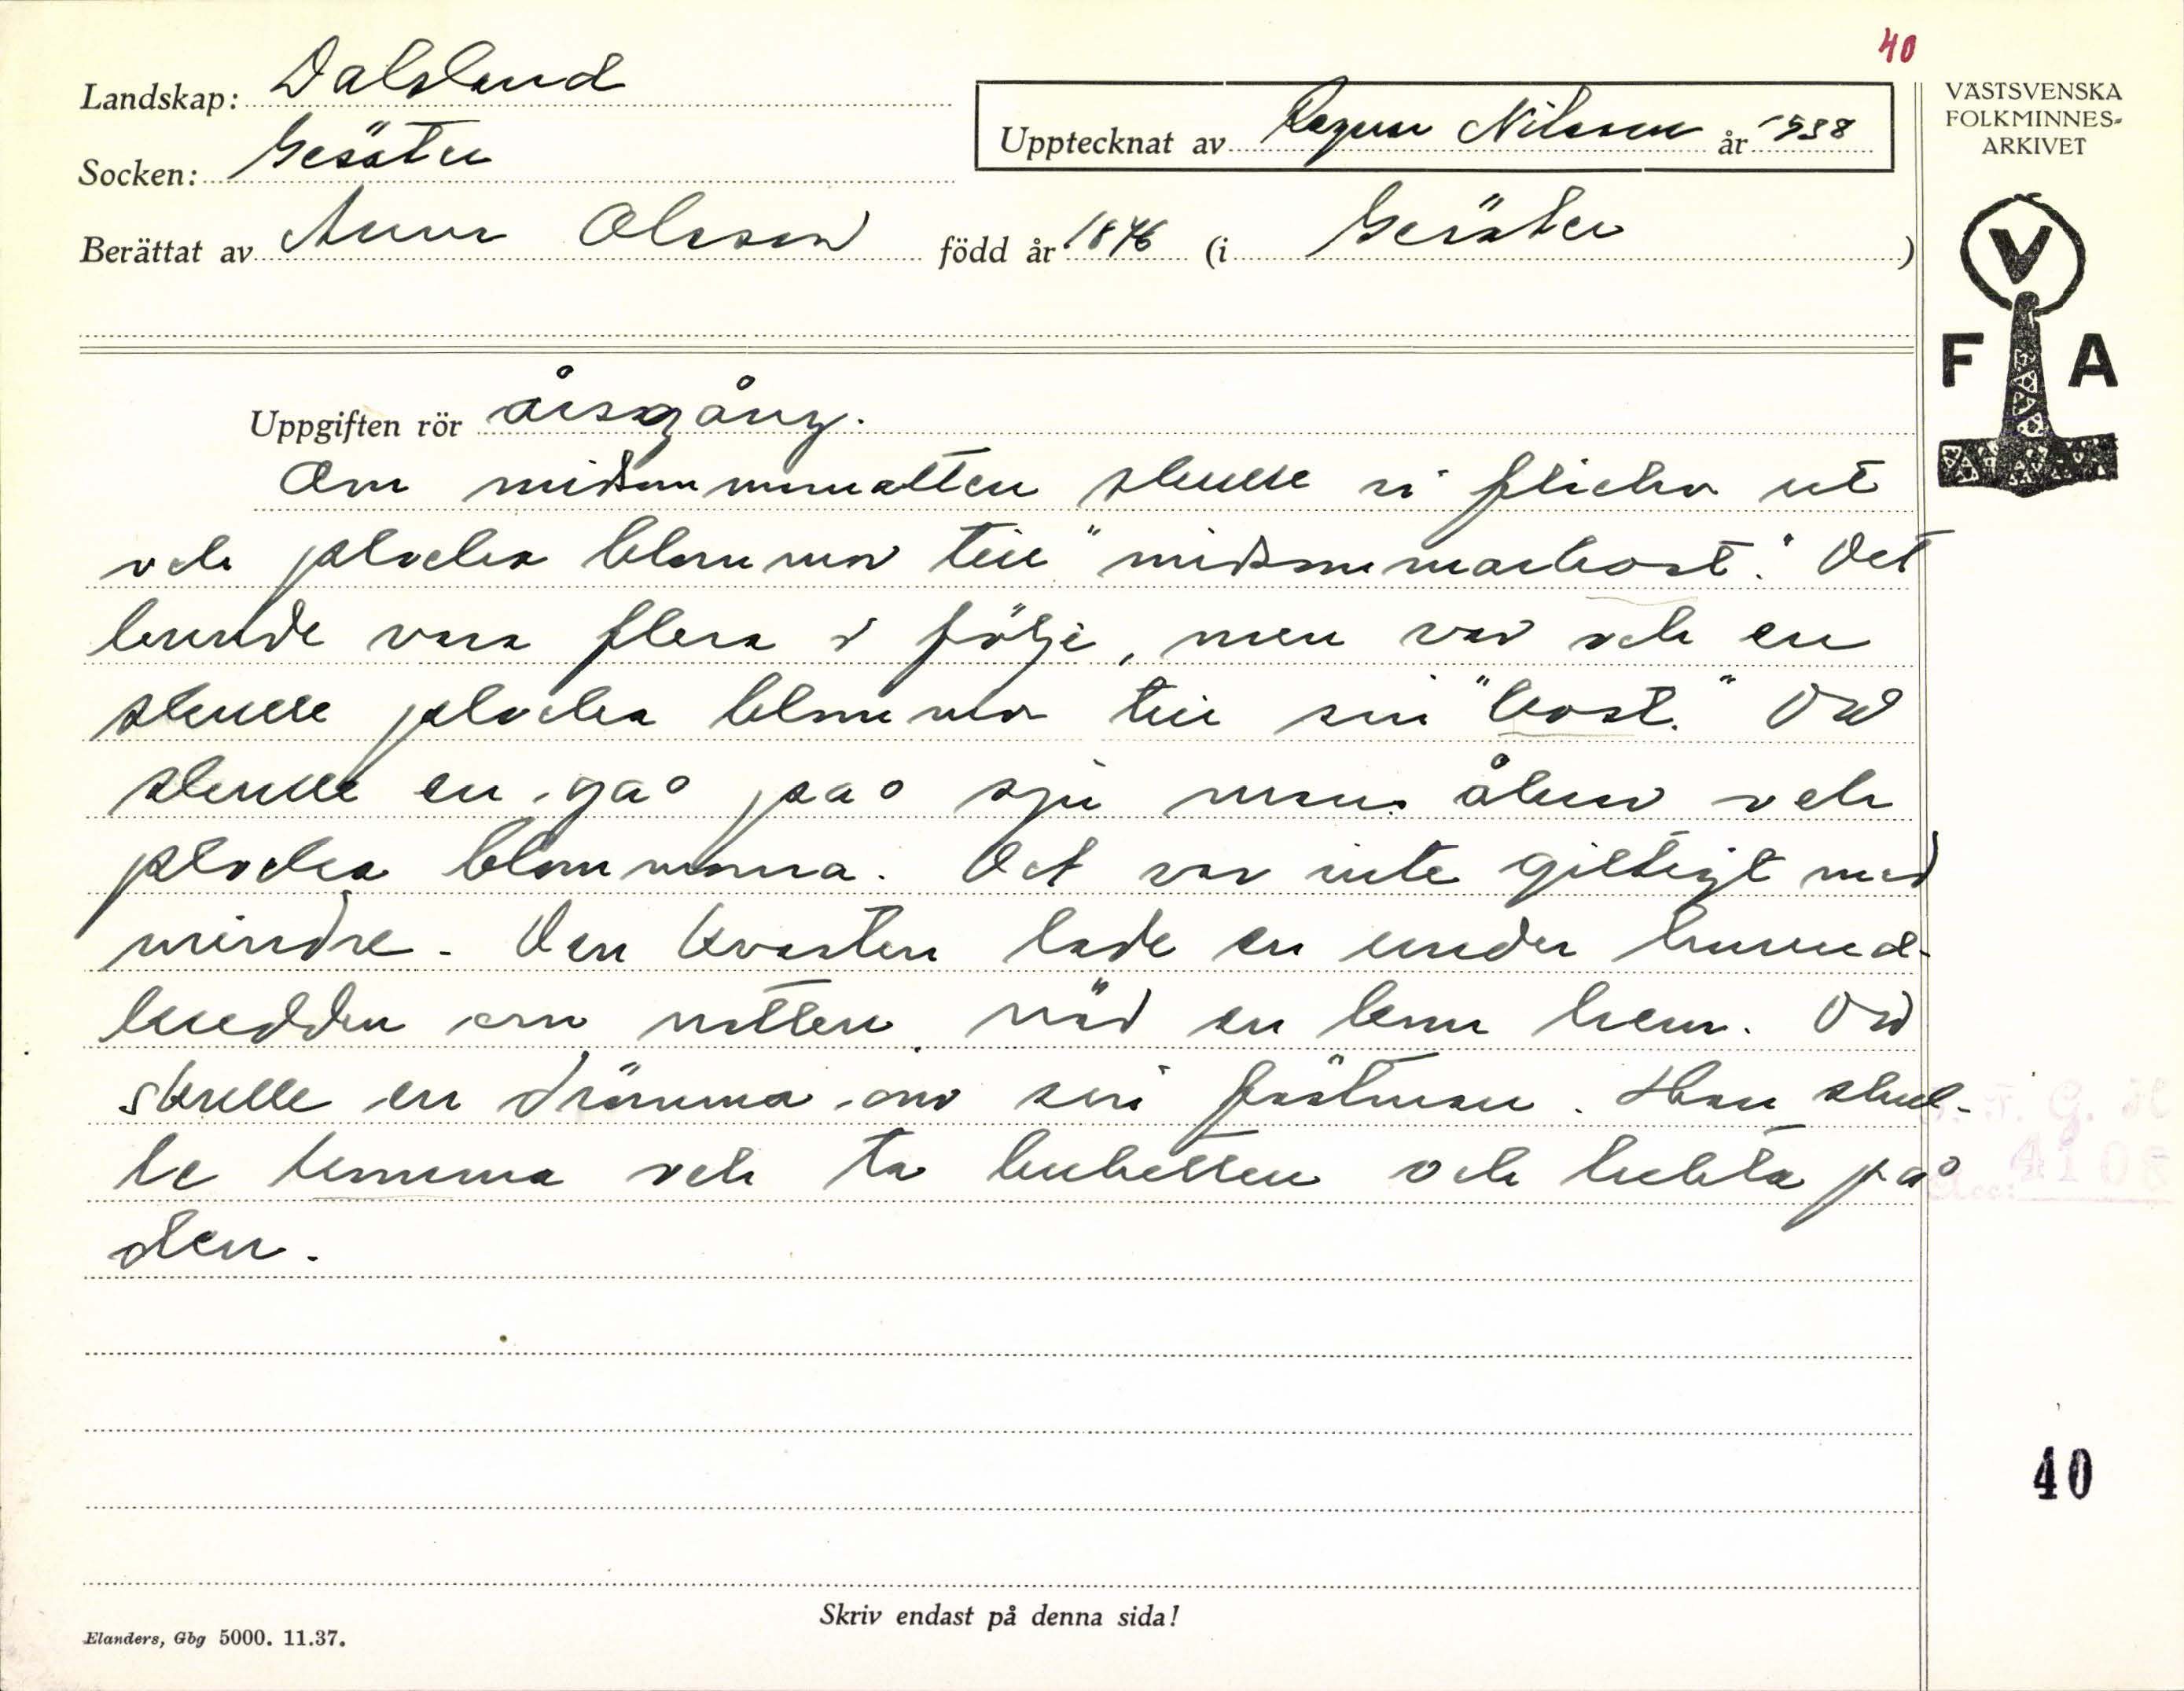 40
Landskap: Dalsland
Upptecknat av Ragnar Nilsson år 1938
VÄSTSVENSKA
FOLKMINNES-
ARKIVET
Socken: Gesäter
Berättat av Anna Olsson född år 1846 (i Gesäter)
V
F A
Uppgiften rör årsgång.
Om midsommarnatten skulle vi flickor ut
och plocka blommor till "midsommarkost." Det
kunde vara flera i följe, men var och en
skulle plocka blommor till sin "kost." Då
skulle en gå på sju mans åkrar och
plocka blommorna. Det var inte giltigt med
mindre. Den kvasten lade en under huvud-
kudden om natten, när en kom hem. Då
skulle en drömma om sin fästman. Han skul-
le komma och ta buketten och lukta på
den.
4105
40
Skriv endast på denna sida!
Elanders, Gbg 5000. 11.37.